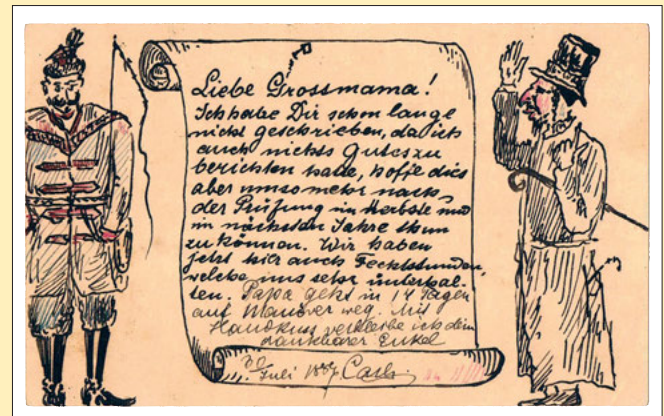 Liebe Grossmama!
Ich habe Dir schon lange
nicht geschrieben, da ich
auch nichts Gutes zu
berichten habe, hoffe dies
aber umsomehr nach
der Prüfung im Herbste und
im nächsten Jahre thun
zu können. Wir haben
jetzt hier auch Fechtstunden,
welche uns sehr unterhal-
ten. Papa geht in 14 Tagen
auf Manöver weg. Mit
Handkuss verbleibe ich dein
dankbarer Enkel
30 Juli Carl